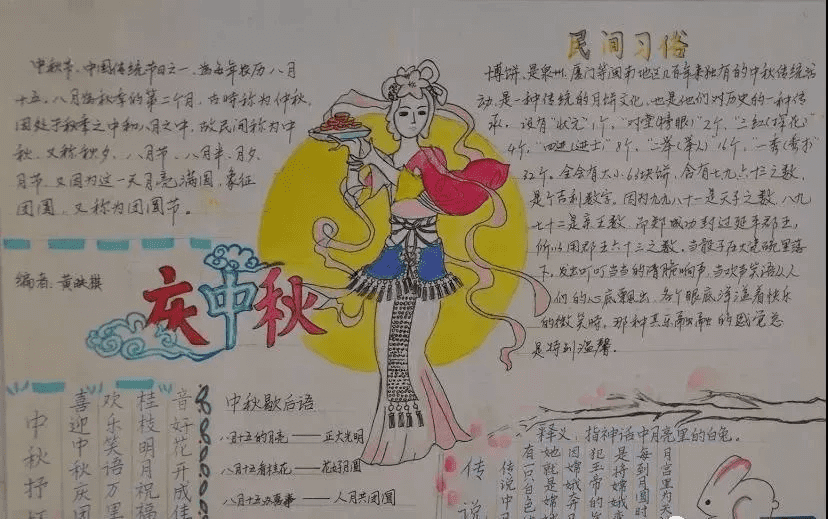 中秋节、中国传统节日之一、为每年农历八月
十五、八月为秋季的第二个月,古时称为仲秋,
因处于秋季之中和八月之中,故民间称为中
秋、又称秋夕、八月节、八月半、月夕、
月节、又因为这一天月亮满圆,象征
团圆,又称为团圆节。
编者:黄
庆中秋
民间习俗
博饼、是泉州、厦门等闽南地区几百年来独有的中秋传统活
动、是一种传统的月饼文化,也是他们对历史的一种传
承。设有“状元”1个,“对堂(榜眼)”2个,“三红(探花)
4个,“四进(进士)”8个,“二举(举人)”16个,一秀(秀才)
32个。全会有大小63块饼,含有七九六十三之数,
是个吉利数字。因为九九八十一是天子之数,八九
七十二是亲王数,而郑成功封过延平郡王,
所以用郡王六十三之数。当骰子在大瓷碗里落
下,发出叮叮当当的清脆响声,当欢声笑语从人
们的心底飘出、各个眼底洋溢着快乐
的微笑时,那种其乐融融的感觉总
是特别温馨.
中秋抒
喜迎中秋庆团
欢乐笑语万里
桂枝明月祝福
音好花开成佳
中秋歇后语
八月十五的月亮——正大光明
八月十五看桂花——花好月圆
八月十五办喜事——人月共团圆
传说
释义:指神话中月亮里的白兔。
月宫里为天
每到月圆时
是将嫦娥
犯玉帝的
因嫦娥奔
她就是嫦
有一只白色
传说中